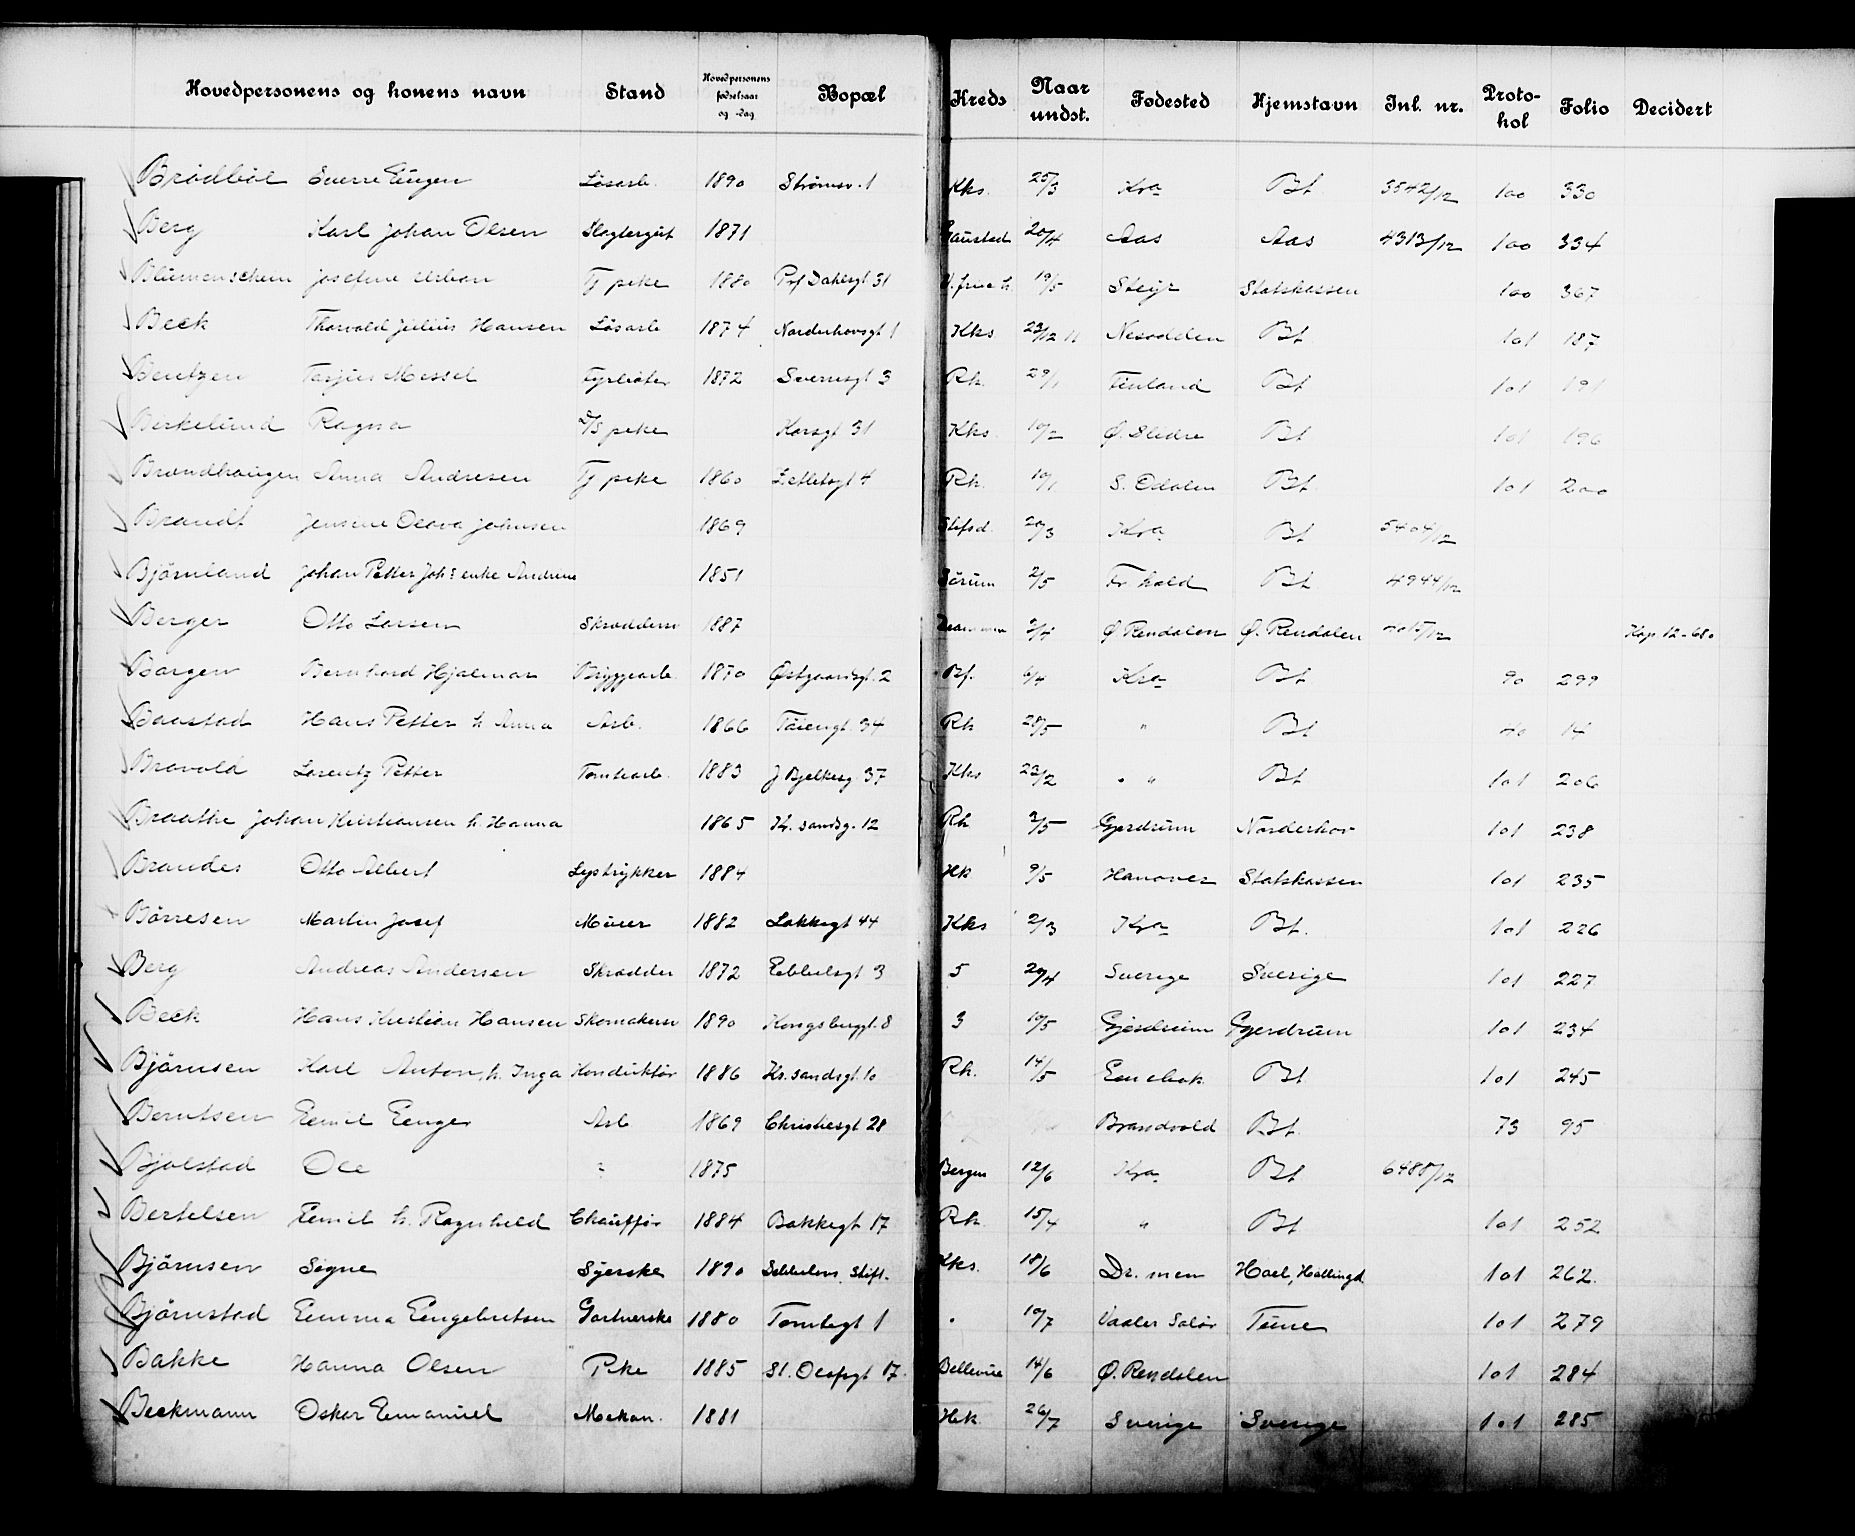 Hovedpersonens og konens navn Stand Hovedpersonens fødselsaar og -dag Bopæl Kreds Naar undst. Fødested Hjemstavn Inl. nr. Protokol Folio Decidert
Brødbøl Sverre Eugen Løsarb. 1890 Strømsv. 1 Kks. 25/3 Kra Bt 3542/12 100 330
Berg Karl Johan Olsen Slagtergut 1871 Gaustad 20/4 Aas Aas 4313/12 100 334
Blumenschein Josefine Urban Tj peke 1880 Prf Dahlsgt 31 V. frue h. 19/5 Steyr Statskassen 100 367
Beck Thorvald Julius Hansen Løsarb 1874 Norderhovsgt 1 Kks 23/12 11 Nesodden Bt 101 187
Bentzen Tarjus Messel Fyrbøter 1872 Sverresgt 3 Rh. 29/1 Finland Bt 101 191
Birkelund Ragna D/S peke Korsgt 31 Kks. 10/2 Ø. Slidre Bt 101 196
Brændhaugen Anna Andresen Tj peke 1860 Zetlitzgt 4 Rh. 10/1 S. Odalen Bt. 101 200
Brandt Jensine Olava Johnsen 1869 Stifsd. 20/3 Kra Bt 5404/12
Bjørnland Johan Petter Johs enke Andrine 1851 Sørum 2/5 Fr. hald Bt 4944/12
Berger Otto Larsen Skræddersv 1887 Drammen 2/4 Ø Rendalen Ø. Rendalen 4015/12 Kop 12-680
Bargen Bernhard Hjalmar Bryggearb. 1870 Østgaardsgt. 2 Bf. 6/4 Kra Bt 90 299
Baastad Hans Petter h Anna Arb. 1866 Tøiengt. 34 Rh 28/5 " Bt 40 14
Bravold Lorentz Petter Tomtearb. 1883 J Bjelkesg. 37 Kks 23/2 " " Bt 101 206
Braathe Johan Kristiansen h. Hanna 1865 Kr. sandsg. 12 Rh 3/5 Gjerdrum Norderhov 101 238
Brandes Otto Albert Lystrykker 1884 Hk 9/5 Hanover Statskassen 101 235
Børresen Martin Josef Murer 1882 Lakkegt 44 Kks 2/3 Kra Bt. 101 226
Berg Andreas Andersen Skrædder 1872 Ebbelsgt 3 5 29/4 Sverige Sverige 101 227
Beck Hans Kristian Hansen Skomakersv 1890 Kongsberggt. 8 3 10/5 Gjerdrum Gjerdrum 101 234
Bjørnsen Karl Anton, h. Inga Konduktør 1886 Kr. sandsgt. 10 Rh. 14/5 Enebak Bt 101 245
Berntsen Emil Enger Arb 1869 Christiesgt 28 Brandvold Bt. 73 95
Bjølstad Ole 1875 Bergen 12/6 Kra Bt 6488/12
Bertelsen Emil h. Ragnhild Chauffør 1884 Bakkegt 17 Rh. 15/4 " Bt 101 252
Bjørnsen Signe Syerske 1890 Schulens Stift. Kks. 18/6 Dr. men Hoel, Hallingd 101 262.
Bjørnstad Emma Engebretsen Gartnerske 1880 Tomtegt 1 " 10/7 Vaaler Solør Tune 101 279
Bakke Hanna Olsen Pike 1885 St. Olafsgt 17. Bellevue 14/6 Ø. Rendalen 101 284
Beckmann Oskar Emanuel Mekan. 1881 Hk. 26/7 Sverige Sverige 101 285